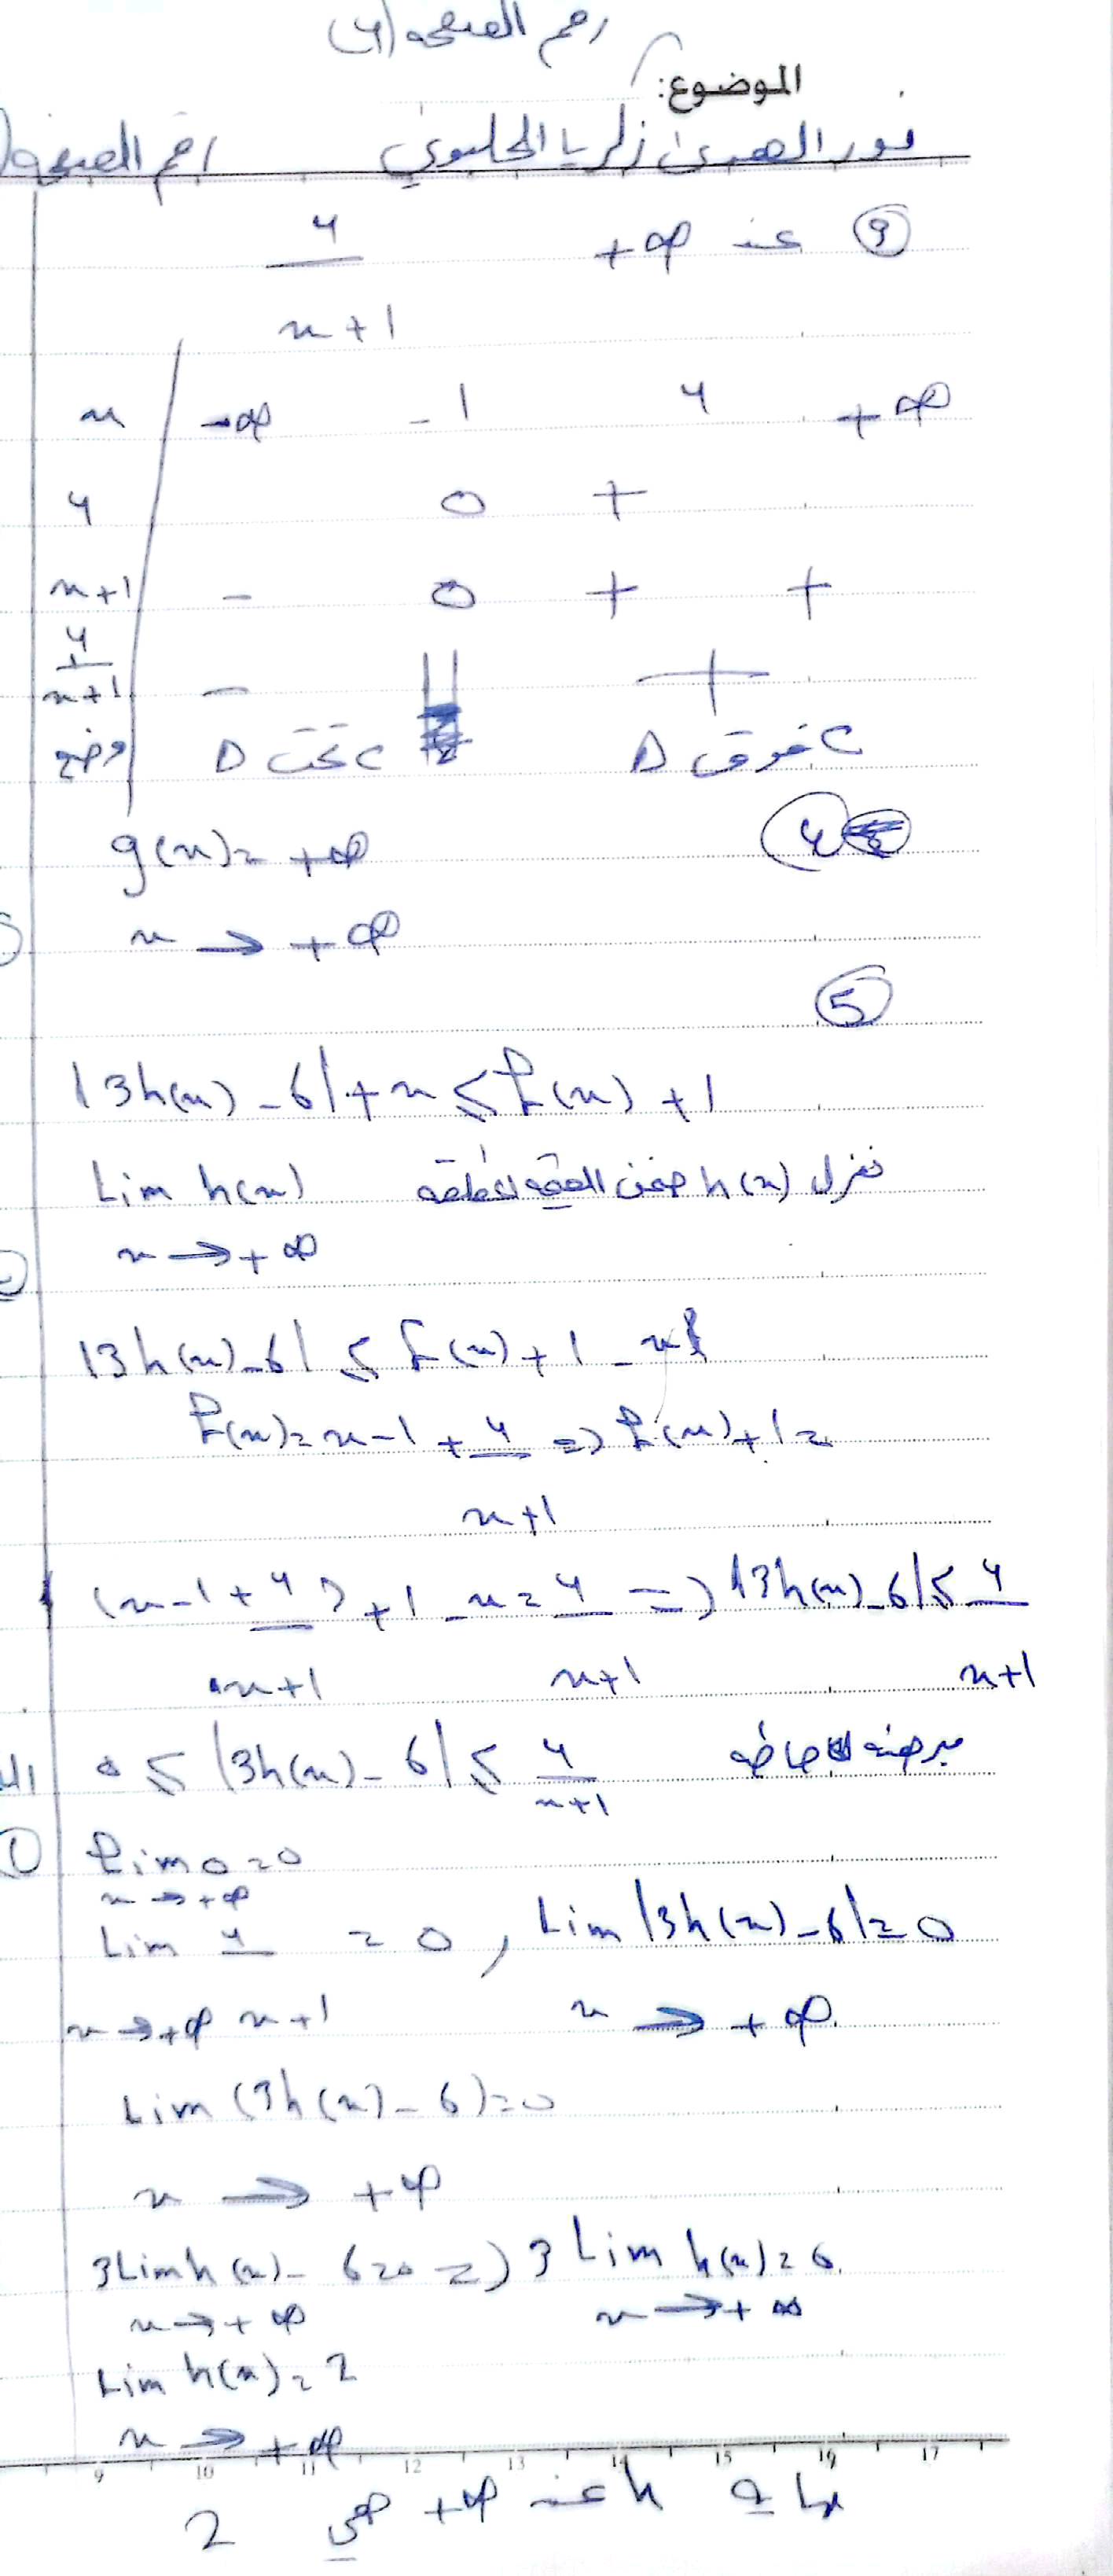 رقم الصفحة (4)
الموضوع:
نور الهدى زكريا الحلموني رقم الصفحة
③ عند +∞ 4/(x+1)
x -∞ -1 4 +∞
4 0 +
x+1 - 0 + +
4/(x+1) - || +
وضع C تحت D C فوق D
④
g(x) = +∞
x → +∞
⑤
|3h(x) - 6| + x ≤ f(x) + 1
Lim h(x) نعزل h(x) ضمن القيمة المطلقة
x → +∞
|3h(x) - 6| ≤ f(x) + 1 - x
f(x) = x - 1 + 4/(x+1) ⇒ f(x) + 1 =
(x - 1 + 4/(x+1)) + 1 - x = 4/(x+1) ⇒ |3h(x) - 6| ≤ 4/(x+1)
0 ≤ |3h(x) - 6| ≤ 4/(x+1) مبرهنة الاحاطة
Lim 0 = 0
x → +∞
Lim 4/(x+1) = 0 , Lim |3h(x) - 6| = 0
x → +∞ x → +∞
Lim (3h(x) - 6) = 0
x → +∞
3Lim h(x) - 6 = 0 ⇒ 3 Lim h(x) = 6
x → +∞ x → +∞
Lim h(x) = 2
x → +∞
9 10 11 12 13 14 15 16 17
نهاية h عند +∞ هي 2